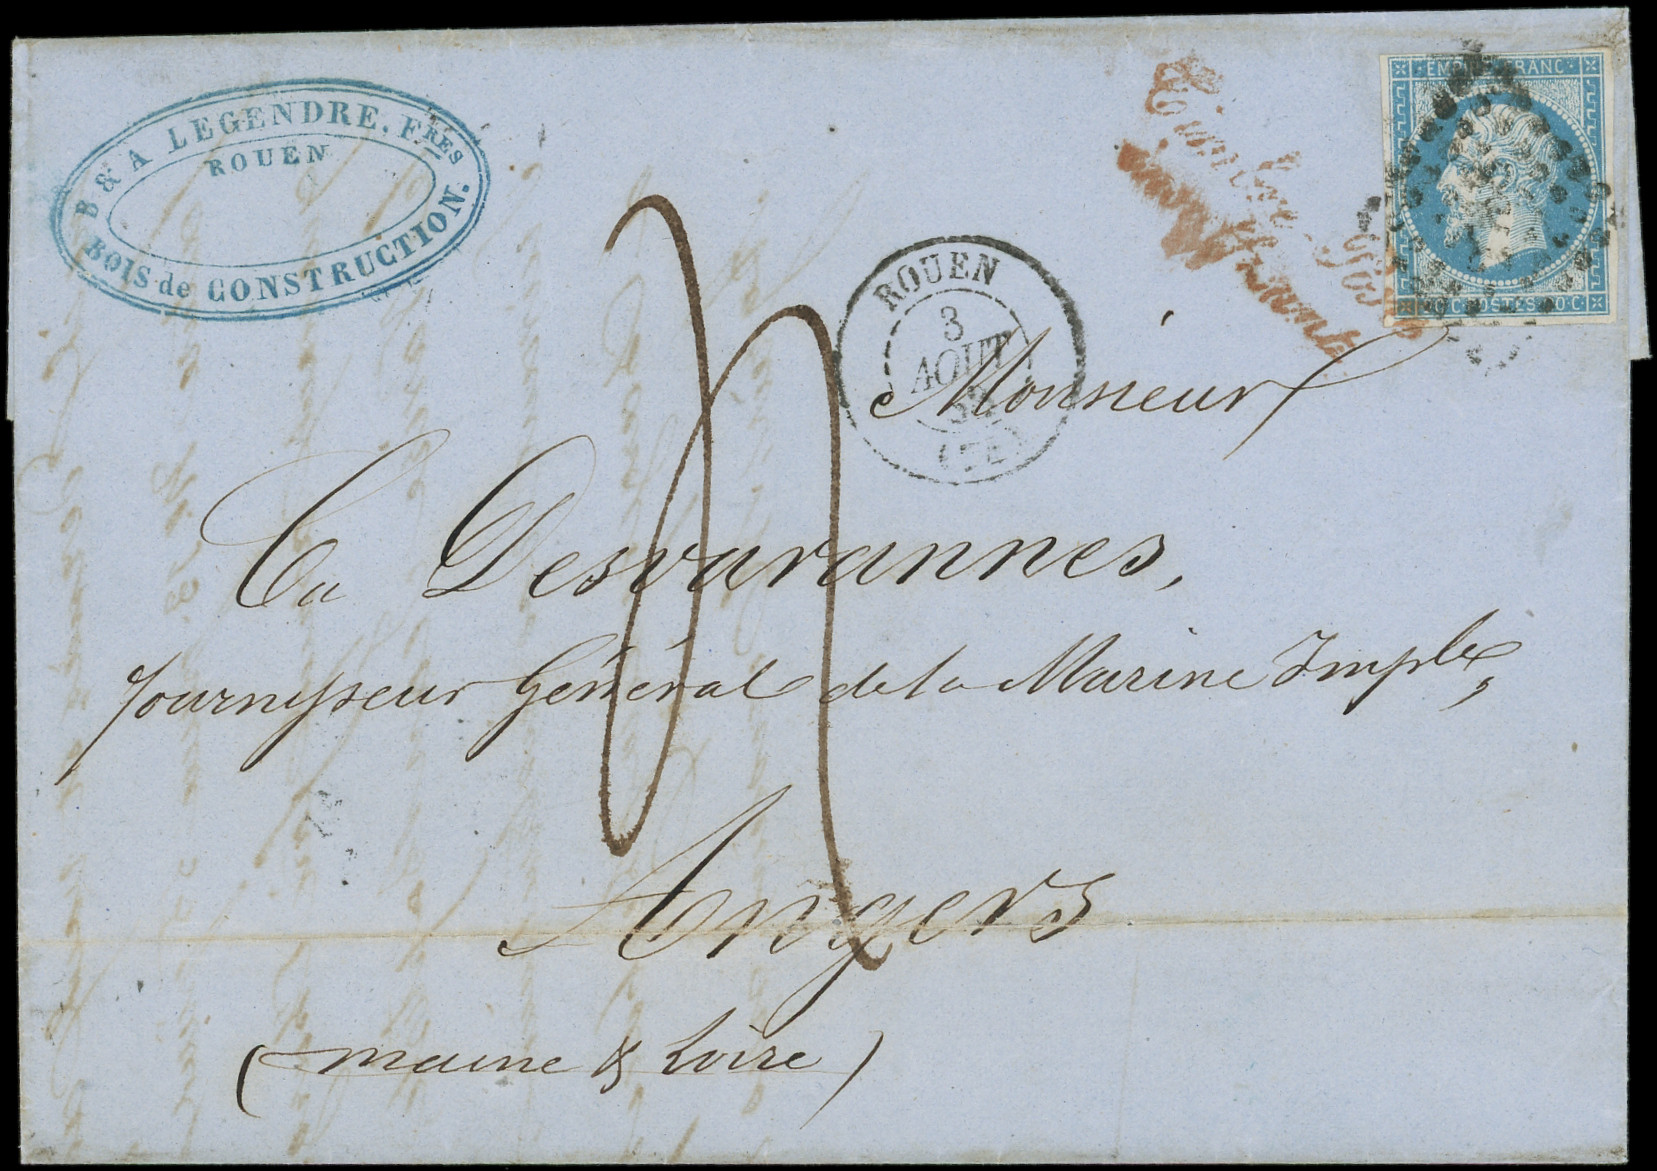 B & A LEGENDRE. FRES
ROUEN
BOIS de CONSTRUCTION.
EMPIRE FRANC
20 C. POSTES 20 C.
ROUEN
3
AOUT
(74)
Monsieur
Desvarannes,
fournisseur Général de la Marine Imple,
Angers
(maine & Loire)